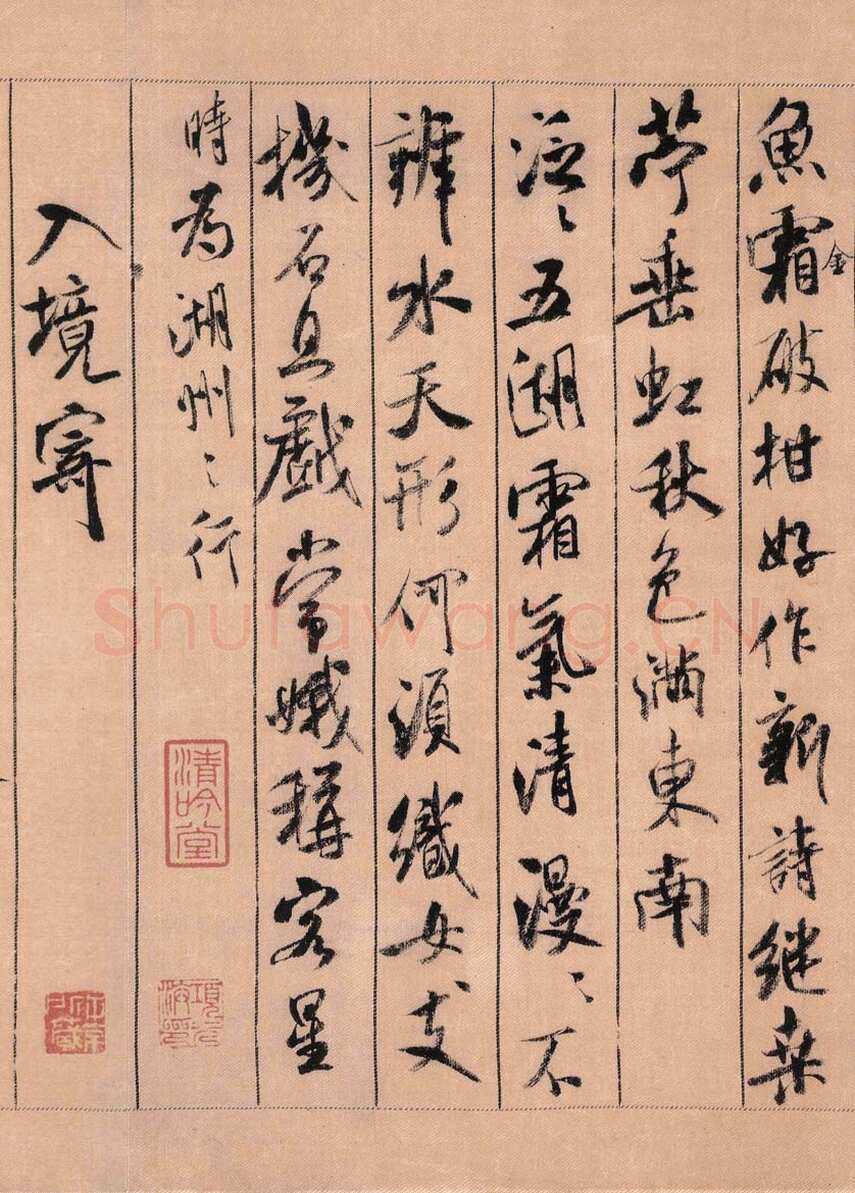 魚霜破柑好作新詩継桒
金
苧垂虹秋色滿東南
泛〻五湖霜氣清漫〻不
辨水天形何須織女支
機石且戲常娥稱客星
時為湖州〻行
入境寄
清吟堂
Shufawang.CN